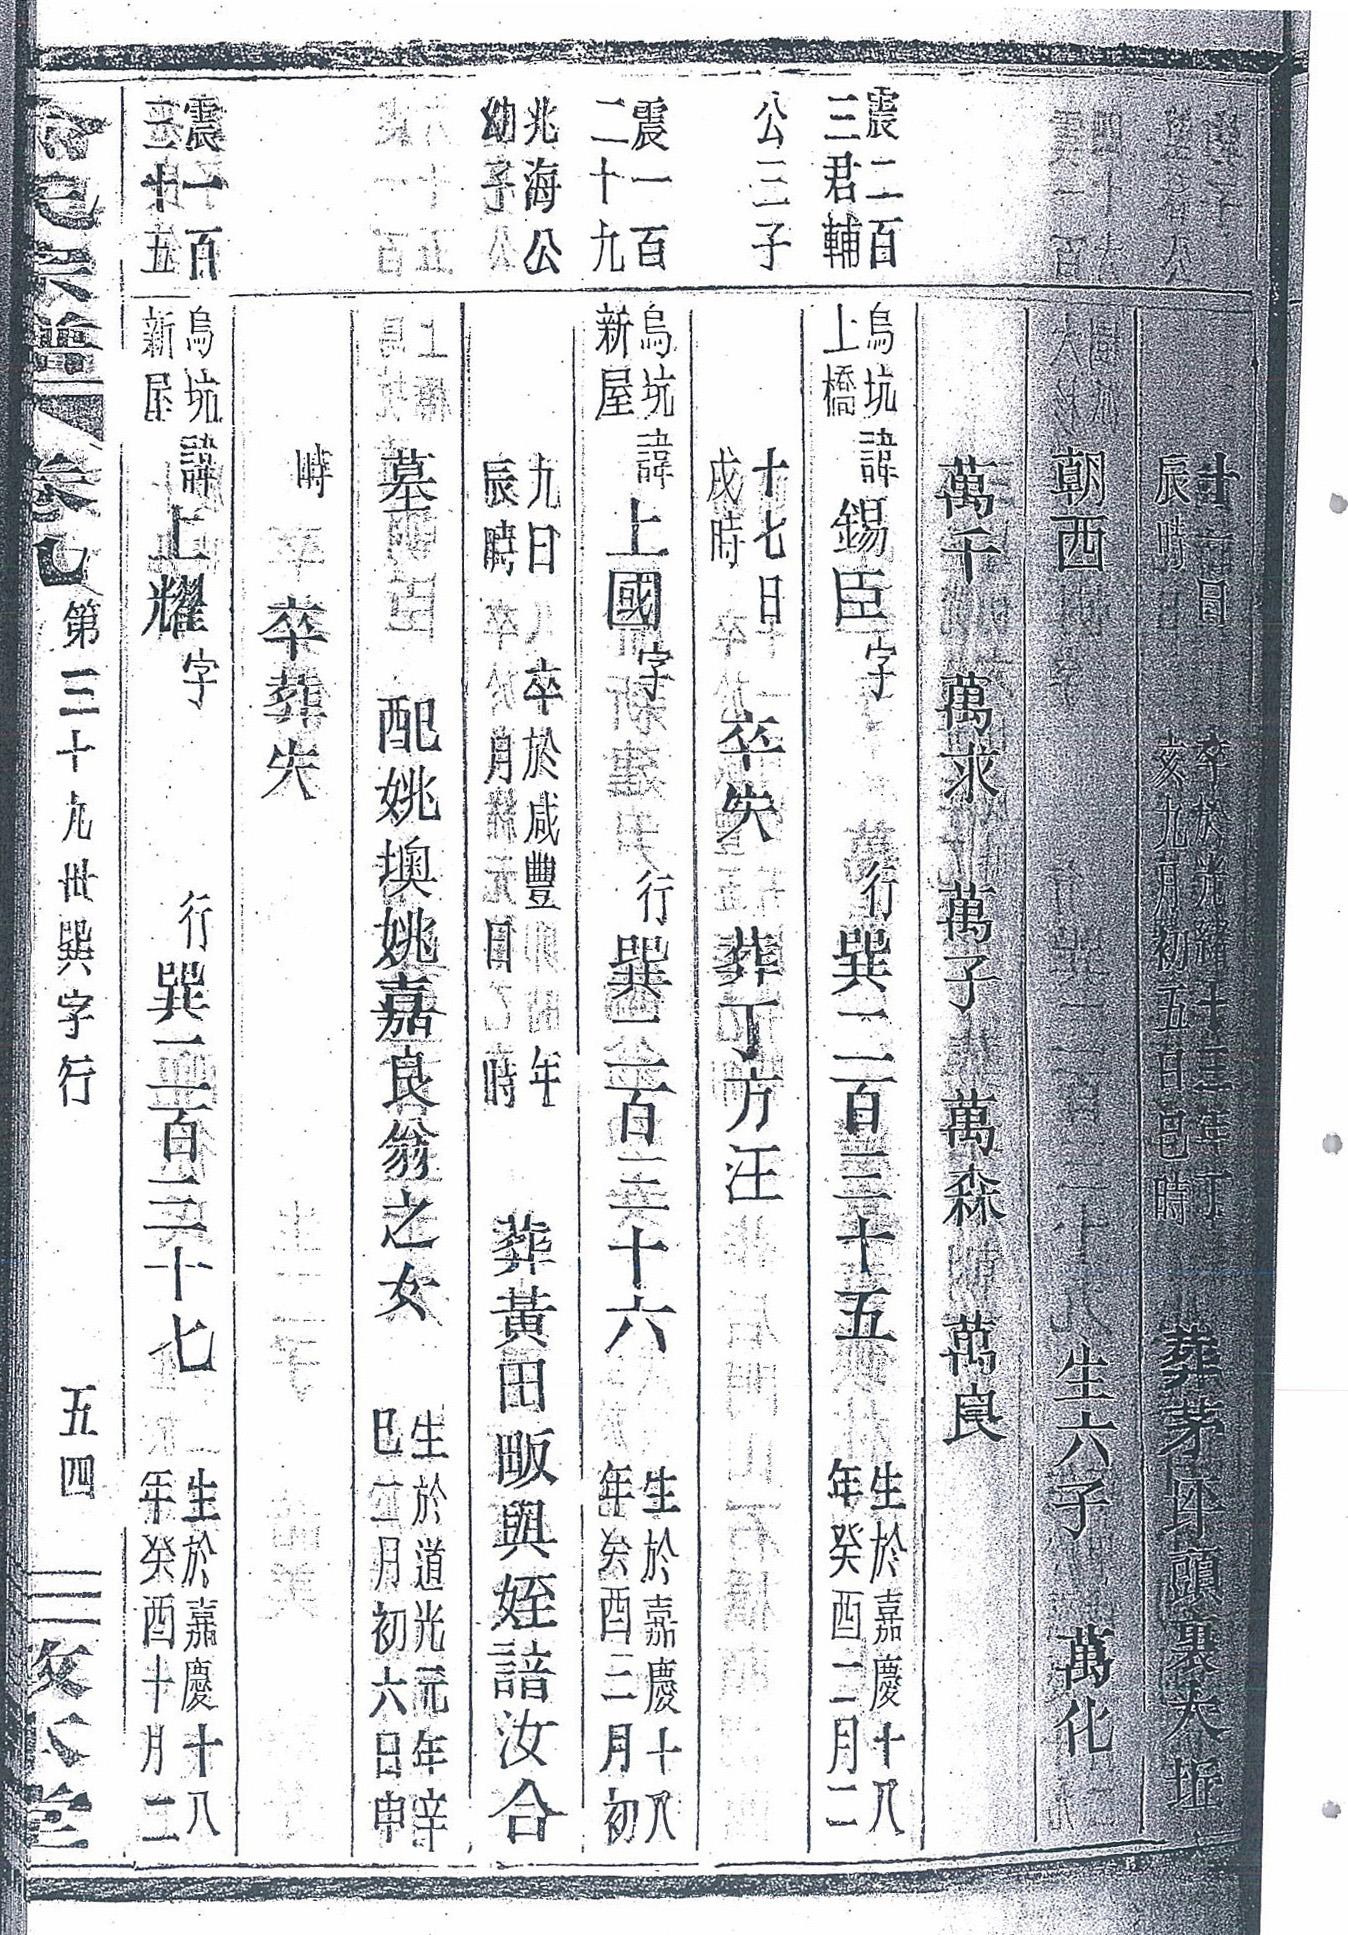 廿二日
辰時
卒於光緒十三年丁
亥九月初五日巳時
葬茅坪頭裏大坵
朝西
生六子
萬化
萬千 萬求 萬子 萬森 萬良
震二百
三君輔
烏坑
上橋
諱錫臣字
行巽二百三十五
生於嘉慶十八
年癸酉二月二
公三子
十七日
戌時
卒失
葬丁方汪
震一百
二十九
烏坑
新屋
諱上國字
行巽二百三十六
生於嘉慶十八
年癸酉三月初
兆海公
幼子
九日
辰時
卒於咸豐 年
月 日 時
葬黃田畈與姪諳汝合
墓
配姚墺姚嘉良翁之女
生於道光元年辛
巳二月初六日申
時
卒葬失
震一百
三十五
烏坑
新屋
諱上耀字
行巽二百三十七
生於嘉慶十八
年癸酉十月二
宗譜 卷九
第三十九世巽字行
五四